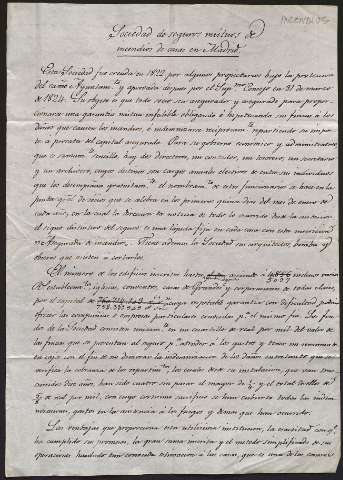 INCENDIOS
Sociedad de seguros mutuos de
incendios de casas en Madrid
Esta Sociedad fue creada en 1822 por algunos propietarios bajo la proteccion
del Exmo Ayuntam.to y aprobada despues por el Sup.mo Consejo en 21 de marzo
de 1824. Su objeto es que todo socio sea asegurador y asegurado para propor-
cionarse una garantia mutua infalible obligando e hipotecando sus fincas a los
daños que causen los incendios, e indemnizarse reciprocam.te repartiendo su impor-
te a prorata del capital asegurado. Para su gobierno economico y administrativo
que es sumam.te sencillo, hay dos directores, un contador, un tesorero, un secretario
y un archivero, cuyos destinos son cargos anuales electivos de entre sus individuos
que los desempeñan gratuitam.te El nombram.to de estos funcionarios se hace en la
junta gral de socios que se celebra en la primera quincena del mes de enero de
cada año, en la cual la direccion da noticia de todo lo ocurrido desde la anterior.
El signo distintivo del seguro es una lapida fija en cada casa con esta inscripcion
Asegurada de incendios. Tiene ademas la Sociedad sus arquitectos, bombas y
obreros que asisten a cortarlos.
El numero de los edificios inscritos hasta asciende a incluso varios
establecim.tos iglesias, conventos, casas de grandes y corporaciones de todas clases,
por el capital de cuya respetable garantia con dificultad podrian
ofrecer las compañias o empresas particulares constituidas p.a el mismo fin. El fon-
do de la Sociedad consiste unicam.te en un cuartillo de real por mil del valor de
las fincas que se presentan al seguro p.a atender a los gastos y tener un remanente
en caja con el fin de no demorar la indemnizacion de los daños cuantiosos que se
verifica la cobranza de los repartim.tos, los cuales desde su instalacion, que van tras-
curridos diez años, han sido cuatro sin pasar el mayor de
de real por mil, con cuyo cortisimo sacrificio se han cubierto todas las indem-
nizaciones, gastos en la asistencia a los fuegos y demas que han ocurrido.
Las ventajas que proporciona esta utilisima institucion, la exactitud con q.e
ha cumplido su promesa, la gran suma inscrita y el metodo simplificado de sus
operaciones hacen tan conocida estimacion a las casas, que es una de las